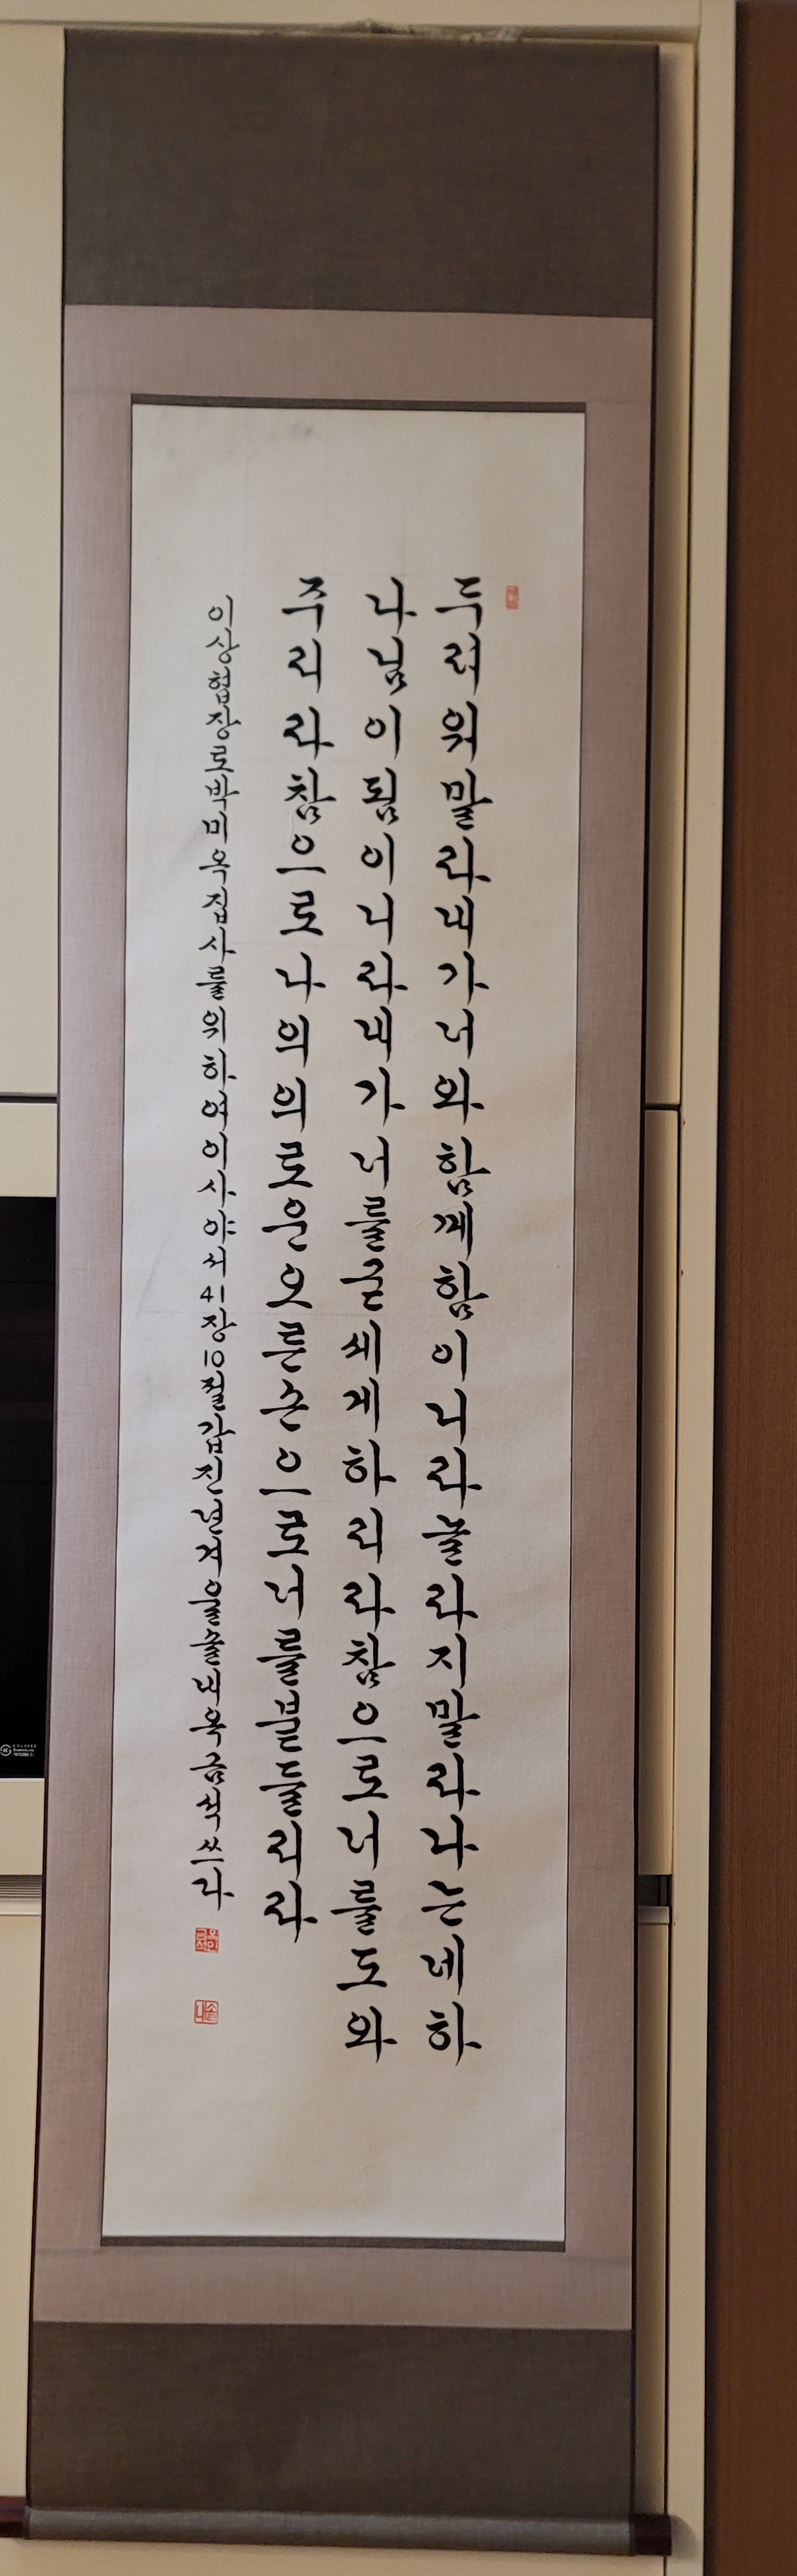 두려워말라내가너와함께함이니라놀라지말라나는네하
나님이됨이니라내가너를굳세게하리라참으로너를도와
주리라참으로나의의로운오른손으로너를붙들리라
이상협장로박미옥집사를위하여이사야서41장10절갑진년겨울솔내옥금석쓰다